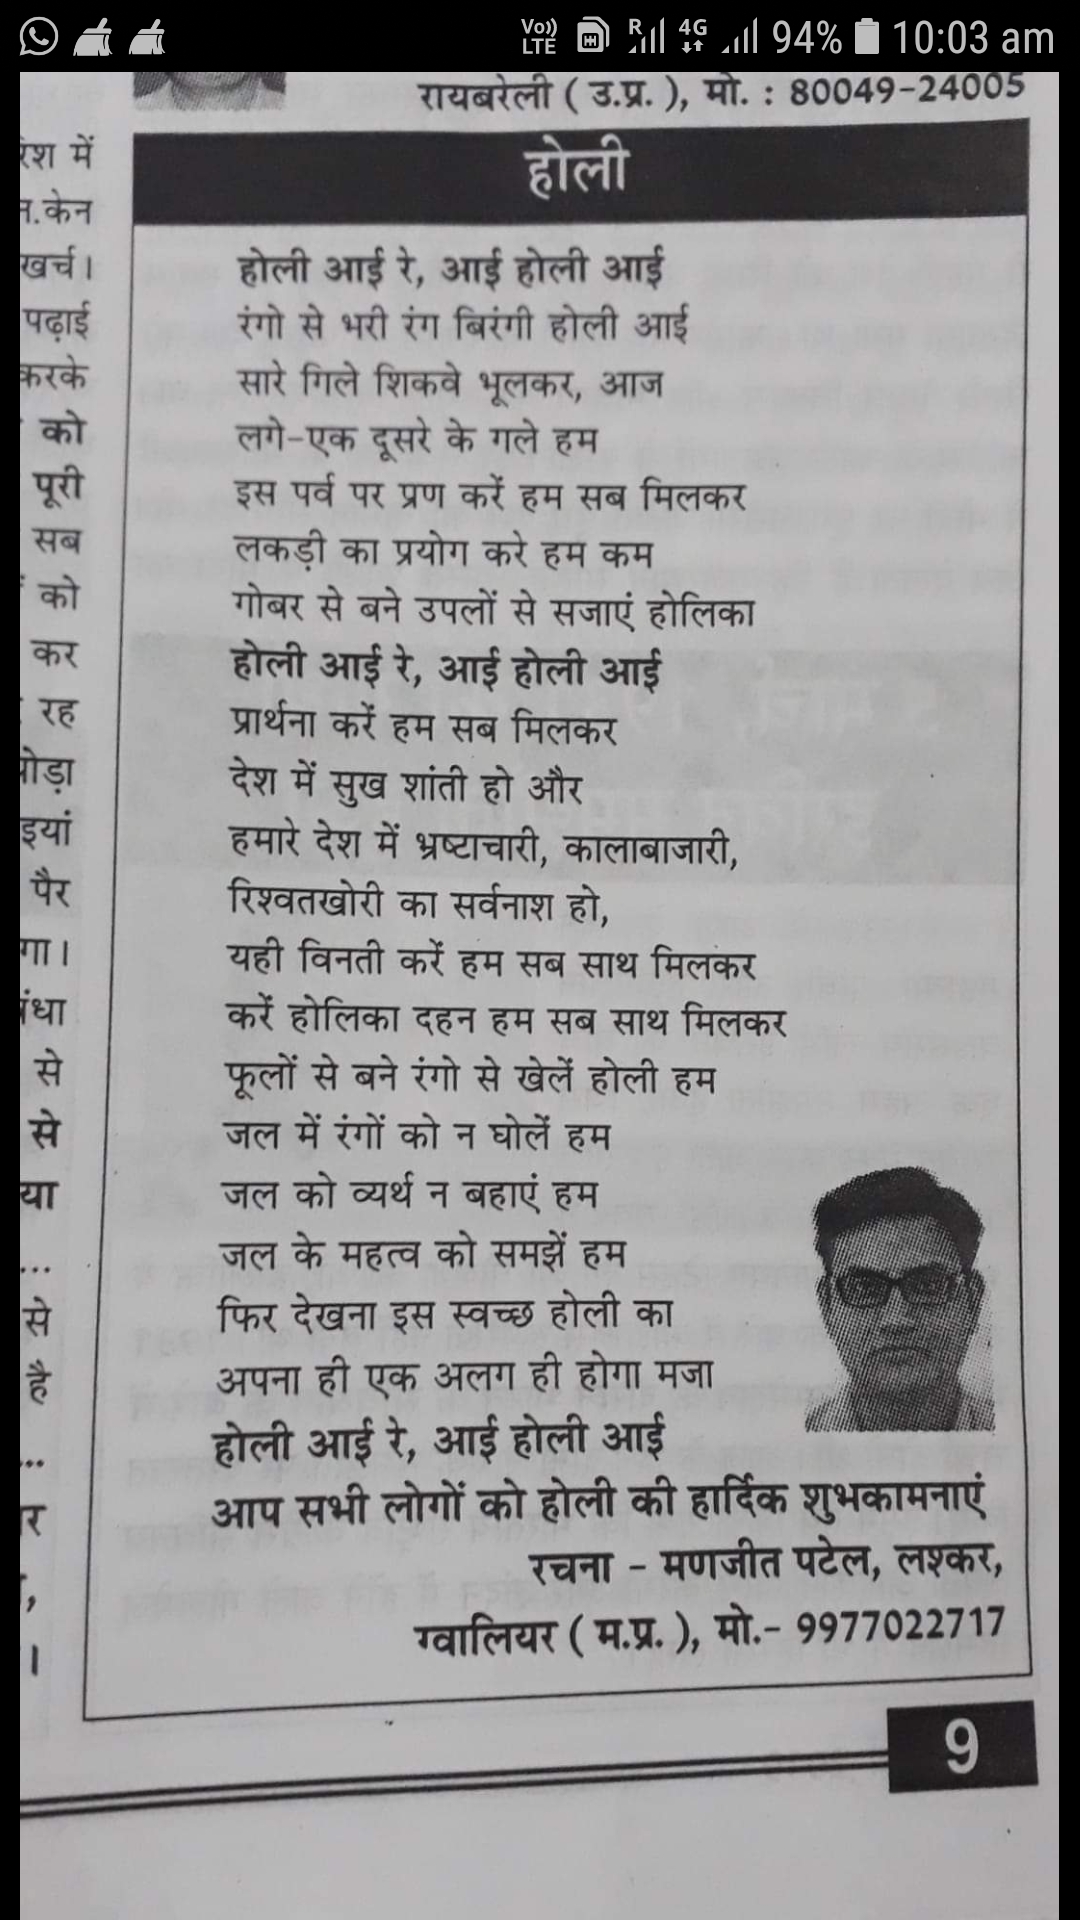 Vo)) LTE R 4G 94% 10:03 am
रायबरेली ( उ.प्र. ), मो. : 80049-24005
होली
होली आई रे, आई होली आई
रंगो से भरी रंग बिरंगी होली आई
सारे गिले शिकवे भूलकर, आज
लगे-एक दूसरे के गले हम
इस पर्व पर प्रण करें हम सब मिलकर
लकड़ी का प्रयोग करे हम कम
गोबर से बने उपलों से सजाएं होलिका
होली आई रे, आई होली आई
प्रार्थना करें हम सब मिलकर
देश में सुख शांती हो और
हमारे देश में भ्रष्टाचारी, कालाबाजारी,
रिश्वतखोरी का सर्वनाश हो,
यही विनती करें हम सब साथ मिलकर
करें होलिका दहन हम सब साथ मिलकर
फूलों से बने रंगो से खेलें होली हम
जल में रंगों को न घोलें हम
जल को व्यर्थ न बहाएं हम
जल के महत्व को समझें हम
फिर देखना इस स्वच्छ होली का
अपना ही एक अलग ही होगा मजा
होली आई रे, आई होली आई
आप सभी लोगों को होली की हार्दिक शुभकामनाएं
रचना - मणजीत पटेल, लश्कर,
ग्वालियर ( म.प्र. ), मो.- 9977022717
9
में
खर्च।
पढ़ाई
करके
को
पूरी
सब
को
कर
रह
पैर
से
से
या
...
से
है
...